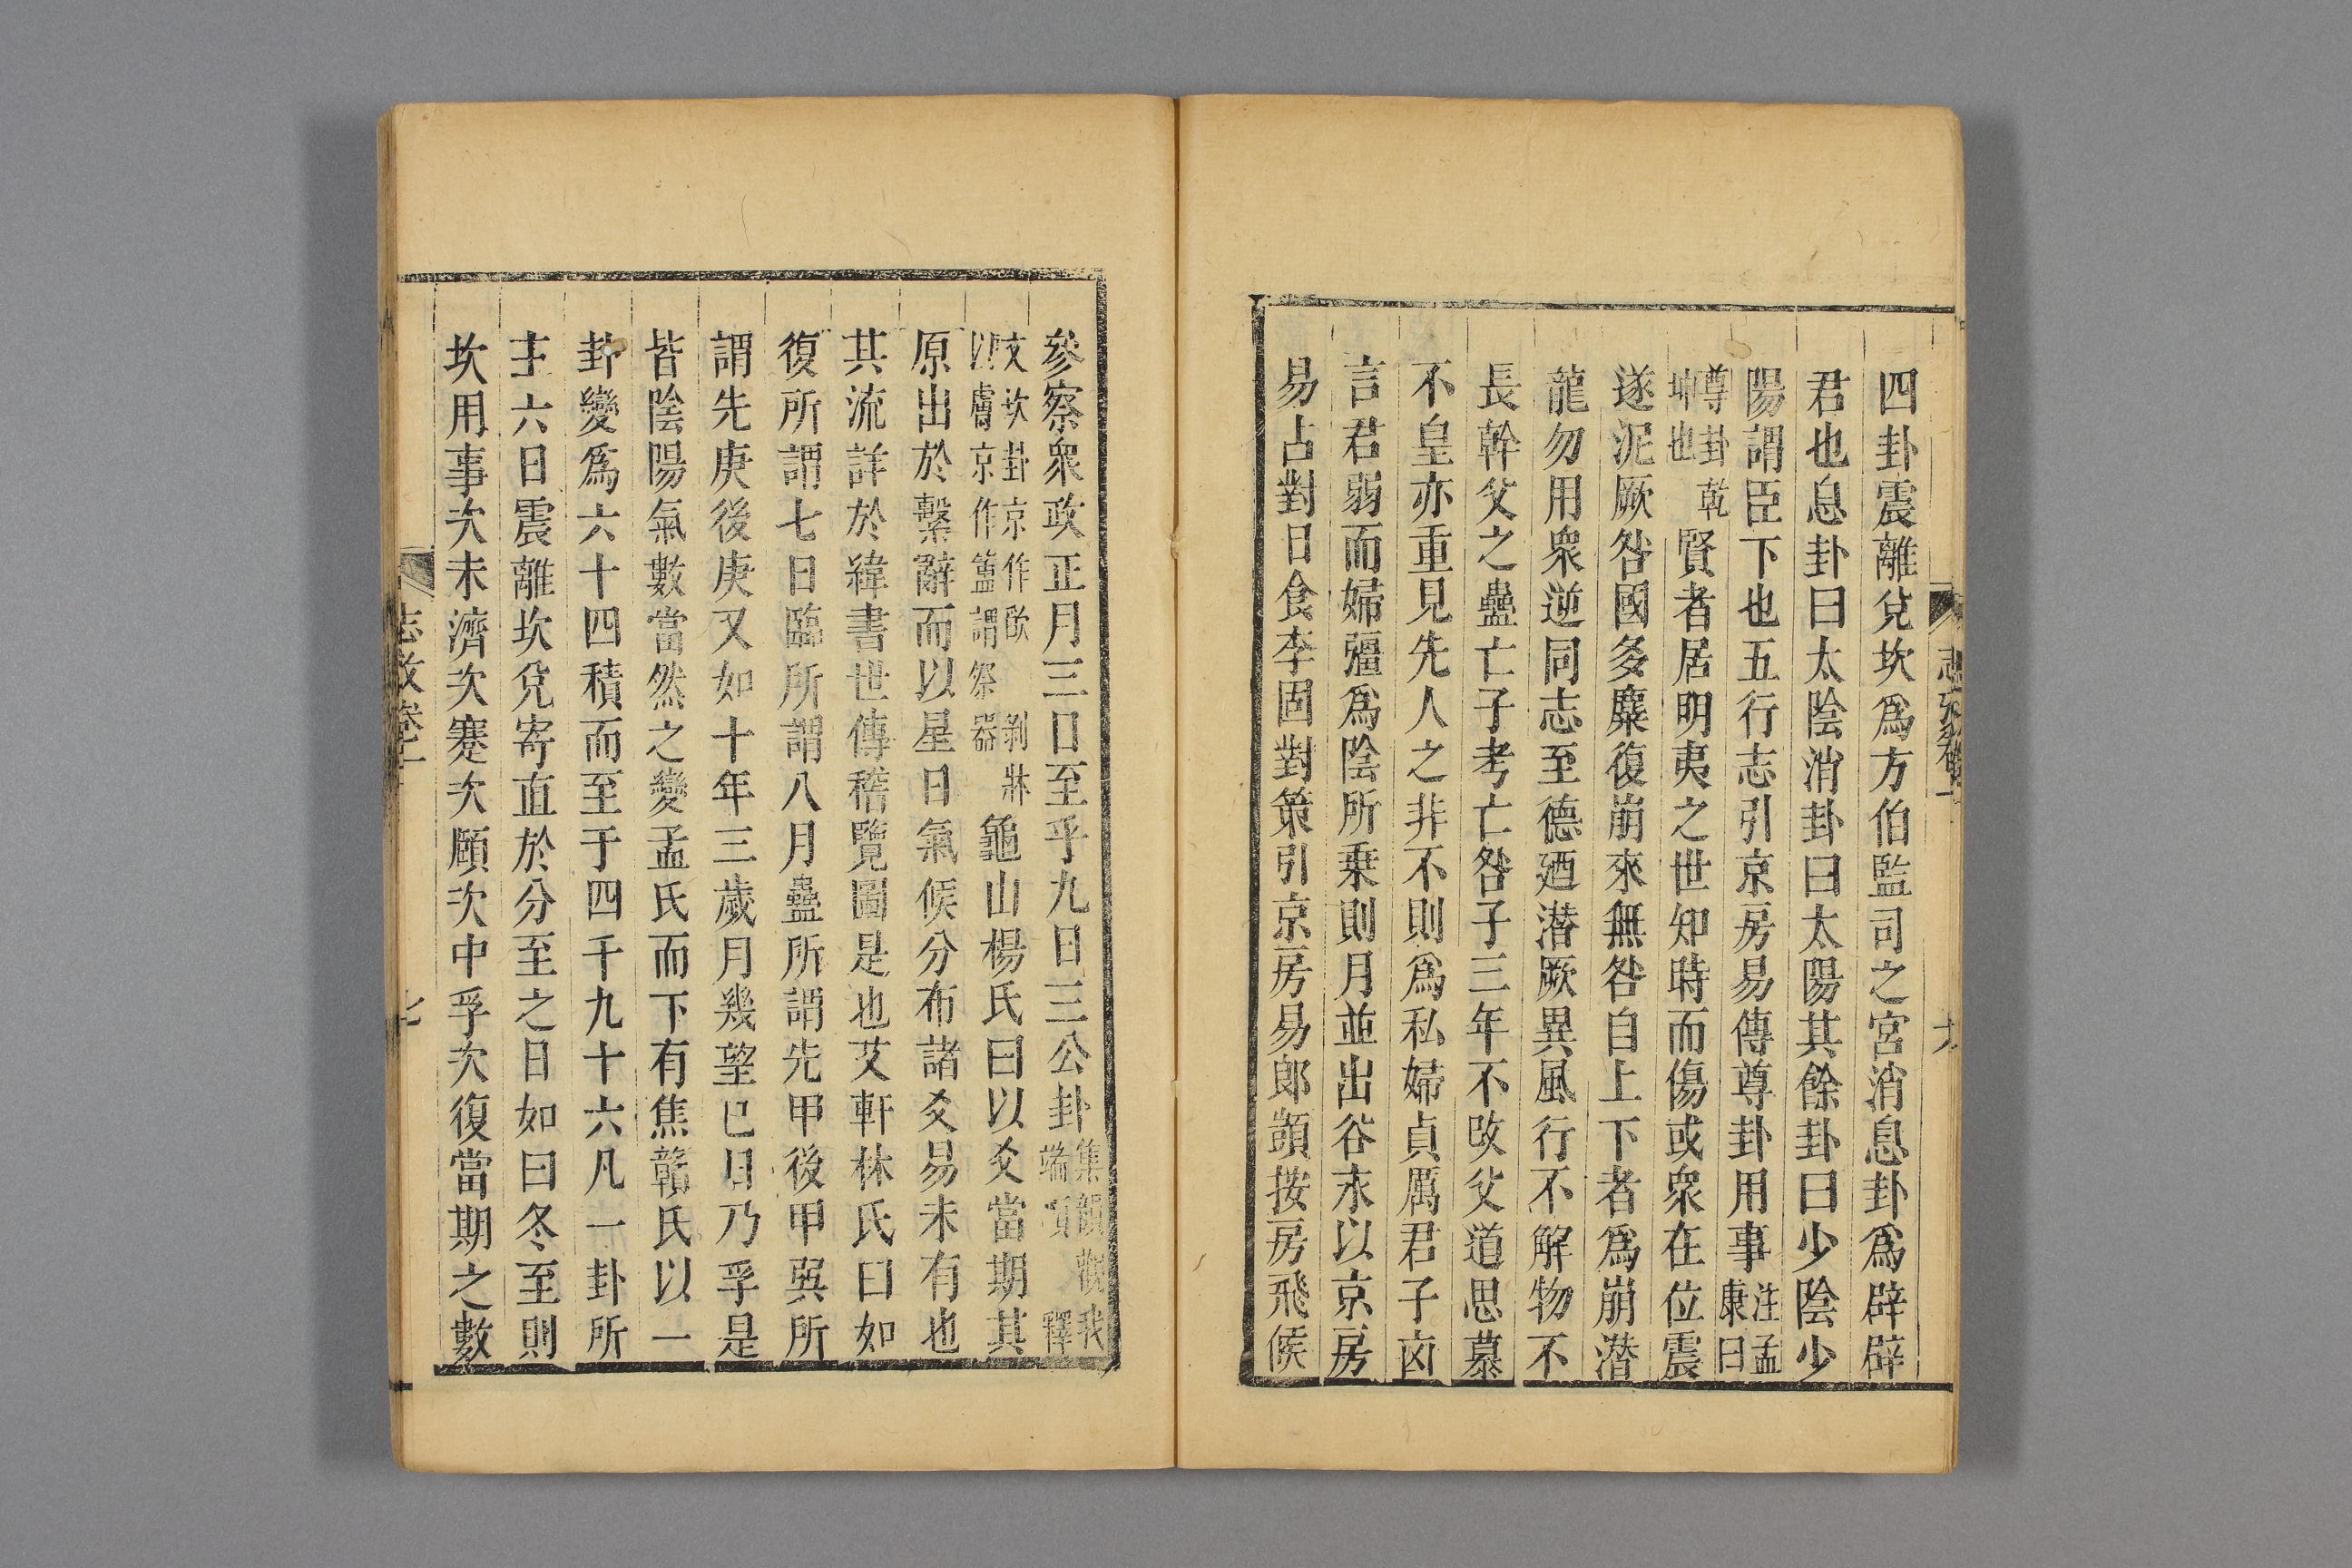 四卦震離兌坎爲方伯監司之宮消息卦爲辟辟
君也息卦曰太陰消卦曰太陽其餘卦曰少陰少
陽謂臣下也五行志引京房易傳尊卦用事注孟康曰
尊卦乾坤也賢者居明夷之世知時而傷或衆在位震
遂泥厥咎國多麋復崩來無咎自上下者爲崩潛
龍勿用衆逆同志至德廼潛厥異風行不解物不
長幹父之蠱亡子考亡咎子三年不改父道思慕
不皇亦重見先人之非不則爲私婦貞厲君子凶
言君弱而婦彊爲陰所乗則月並出谷永以京房
易占對日食李固對策引京房易郎顗按房飛候
參察衆政正月三日至乎九日三公卦集韻觀我端頂釋
文坎卦京作欿剝牀以膚京作簠謂祭器龜山楊氏曰以爻當期其
原出於繫辭而以星日氣候分布諸爻易未有也
其流詳於緯書世傳稽覽圖是也艾軒林氏曰如
復所謂七日臨所謂八月蠱所謂先甲後甲巽所
謂先庚後庚又如十年三歲月幾望已日乃孚是
皆陰陽氣數當然之變孟氏而下有焦贛氏以一
卦變爲六十四積而至于四千九十六凡一卦所
主六日震離坎兌寄直於分至之日如曰冬至則
坎用事次未濟次蹇次頤次中孚次復當期之數
志攷卷一